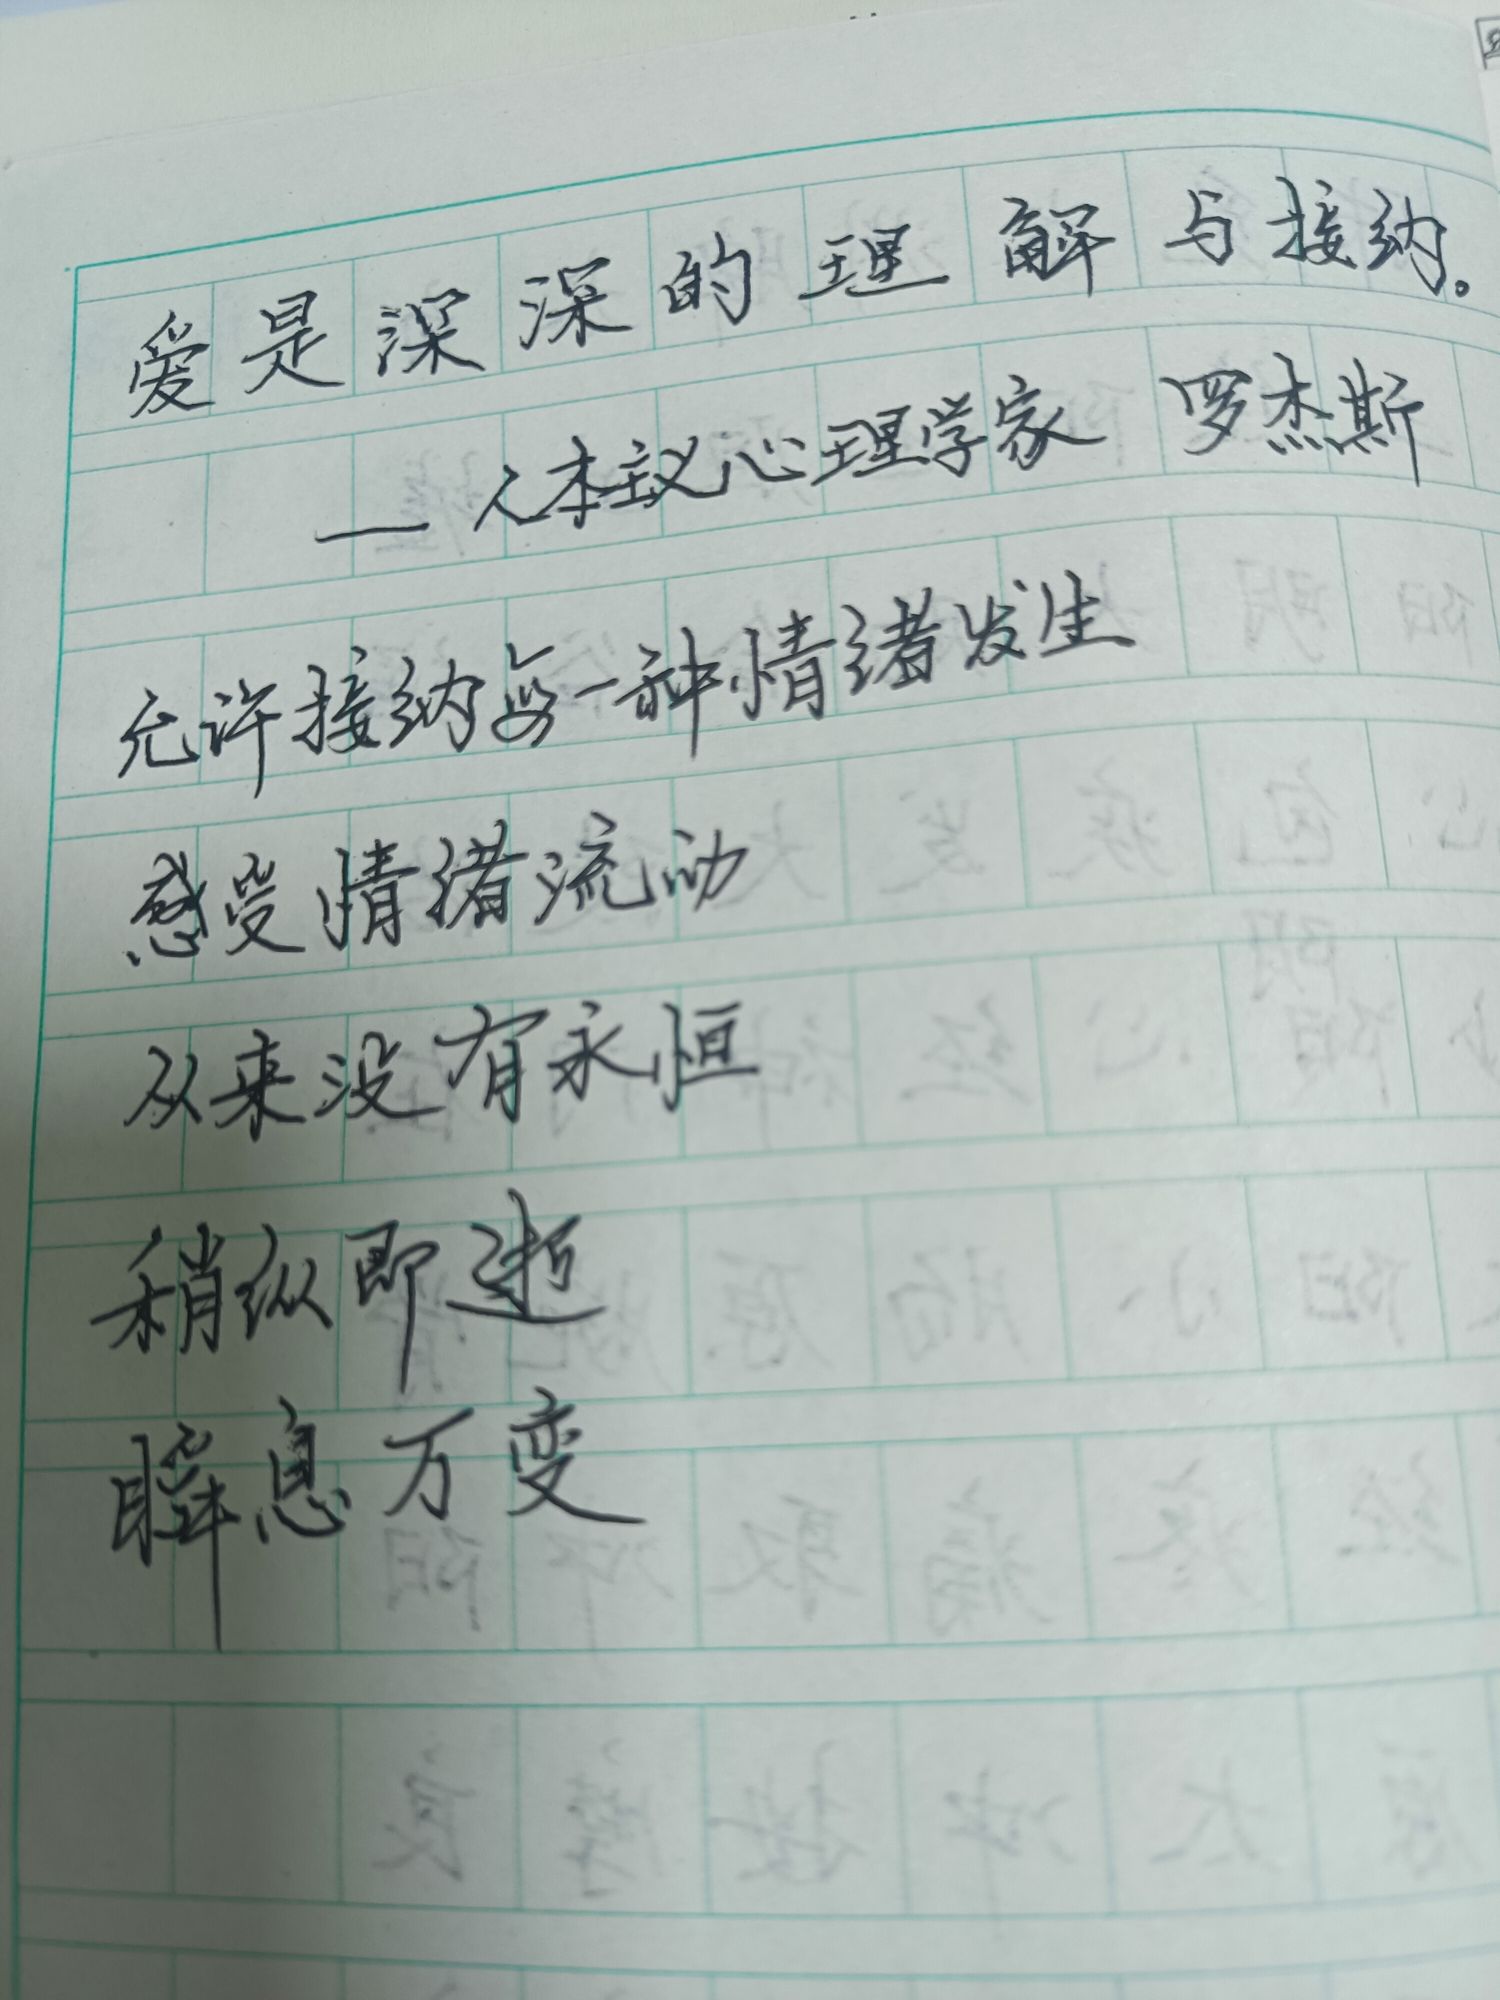 爱是深深的理解与接纳。
— 人本主义心理学家 罗杰斯
允许接纳每一种情绪发生
感受情绪流动
从来没有永恒
稍纵即逝
瞬息万变